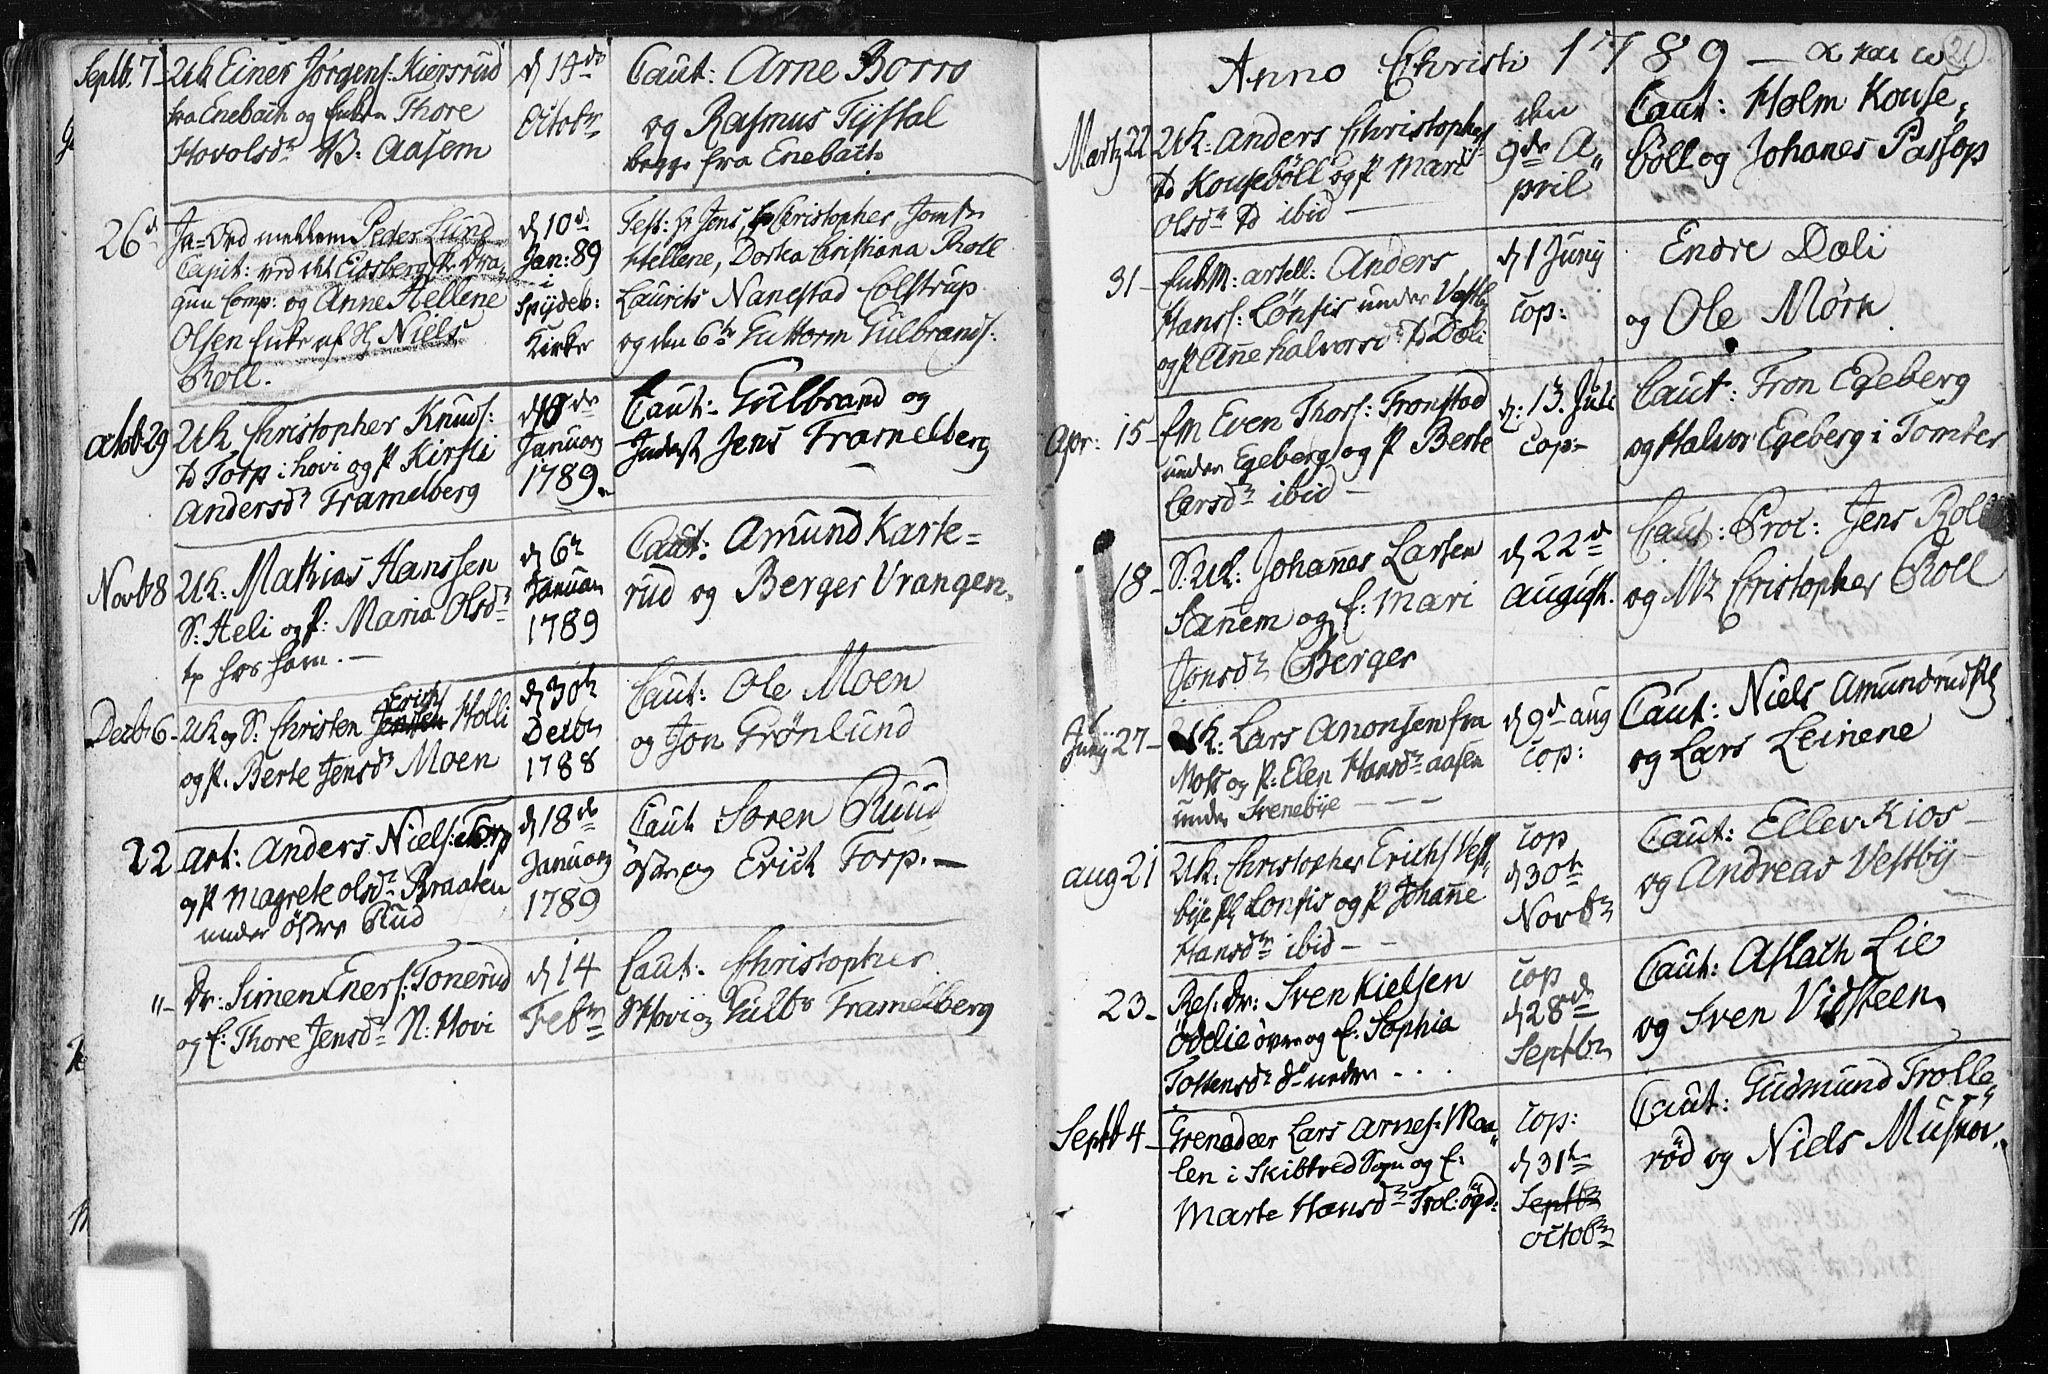 Septb. 7 - UK Einer Jörgens: Kiersrud
fra Enebach og Enken Thore
Hovolsdr V: Aasem
d 14de
Octobr
Caut: Arne Borro
og Rasmus Tÿstal
begge fra Enebach
26d Ja-Ord mellem Peder Lund
Capit: ved det Eidsberg Dra„
gun Comp: og Anne Hellene
Olsen Enke af H Niels
Roll.
d 10d
Jan: 89
i
Spÿdeb:
Kirke
Test: Hr Jens, Hr Christopher, Jomfr
Hellene, Dortea Cristiana Roll
Laurits Nanestad Colstrup
og den 6te Guttorm Gulbrands:
Octob: 29 UK Christopher Knuds:
Torp i hovi og P Kirsti
Andersdr Framelberg
d 18de
Januarÿ
1789.
Caut: Gulbrand og
Jens Framelberg
Novb 8 UK: Mathias Hanssen
S: Heli og P: Maria Olsdr
hos ham. —
d 6te
Januari
1789
Caut: Amund Karte=
rud og Berger Vrangen.
Decb: 6 - UK og S: Christen Erichs Jensen Holli
og P. Berte Jensdr Moen
d 30te
Decbr
1788
Caut: Ole Moen
og Jon Grönlund
22 art: Anders Niels: Torp
og P Magrete Olsdr Braaten
under östre Rud
d 18de
Januarÿ
1789
Caut Soren Ruud
östr og Erich Torp. —
" - Dr: Simen Eners: Tonerud
og E: Thore Jensdr N: Hovi
d 14
Febr
Caut: Christopher
S Hovi og Gulbr Framelberg
21
Anno Christi 1789 —
Martz 22 UK: Anders Christophers:
Kousebøll og P Mari
Olsdr ibid —
den
9de A„
pril
Caut: Holm Kouse„
boll og Johanes Passop
31 - EnkM: artell: Anders
Hanss: Lönsis under Vestbÿ
og P Anne halvorsd: Dæli
d 1 Junÿ
Cop:
Endre Dæli
og Ole Mörk
Apr: 15 - Em Even Thors: Fronstad
under Egeberg og P Berte
Larsdr ibid —
d: 13. Juli
Cop:
Caut: Fron Egeberg
og Halvor Egeberg i Tomter
18 - S: UK: Johannes Larsen
Sanem og E: Mari
Jonsdr Berger
d 22de
August.
Caut: Proc: Jens Roll
og Mr Christopher Roll
Junÿ 27 - UK: Lars Anonsen fra
Moss og P: Elen Hansdr aasen
under Svenebÿe — — —
d 9d aug
Cop:
Caut: Niels Amundrud
og Lars Leinene
aug 21 UK: Christopher Erichs Vest„
bÿe Pl Lonsis og P Johanne
Hansdtr ibid — -
Cop
d 30te
Novbr
Caut: Ellev Kios —
og Andreas Vestbÿ —
23 - Res: Dr: Sven Kielsen
Oddlie övre og E: Sophia
Tostensdr do nedre - . .
Cop
d 28de
Septbr
Caut: Aslach Lie
og Sven Vidsteen
Septb 4 - Grenadeer Lars Arnes: Maa„
len i Skibtved Sogn og E:
Marte Hansdr Trol: ögd:
Cop:
d 31te
Septbr
Octobr
Caut: Gudmund Trolle„
röd og Niels